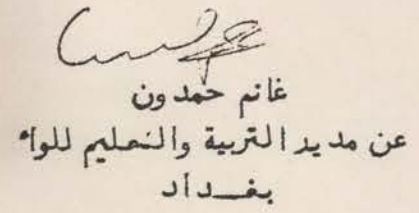 غانم حمدون
عن مدير التربية والتعليم للواء
بغداد